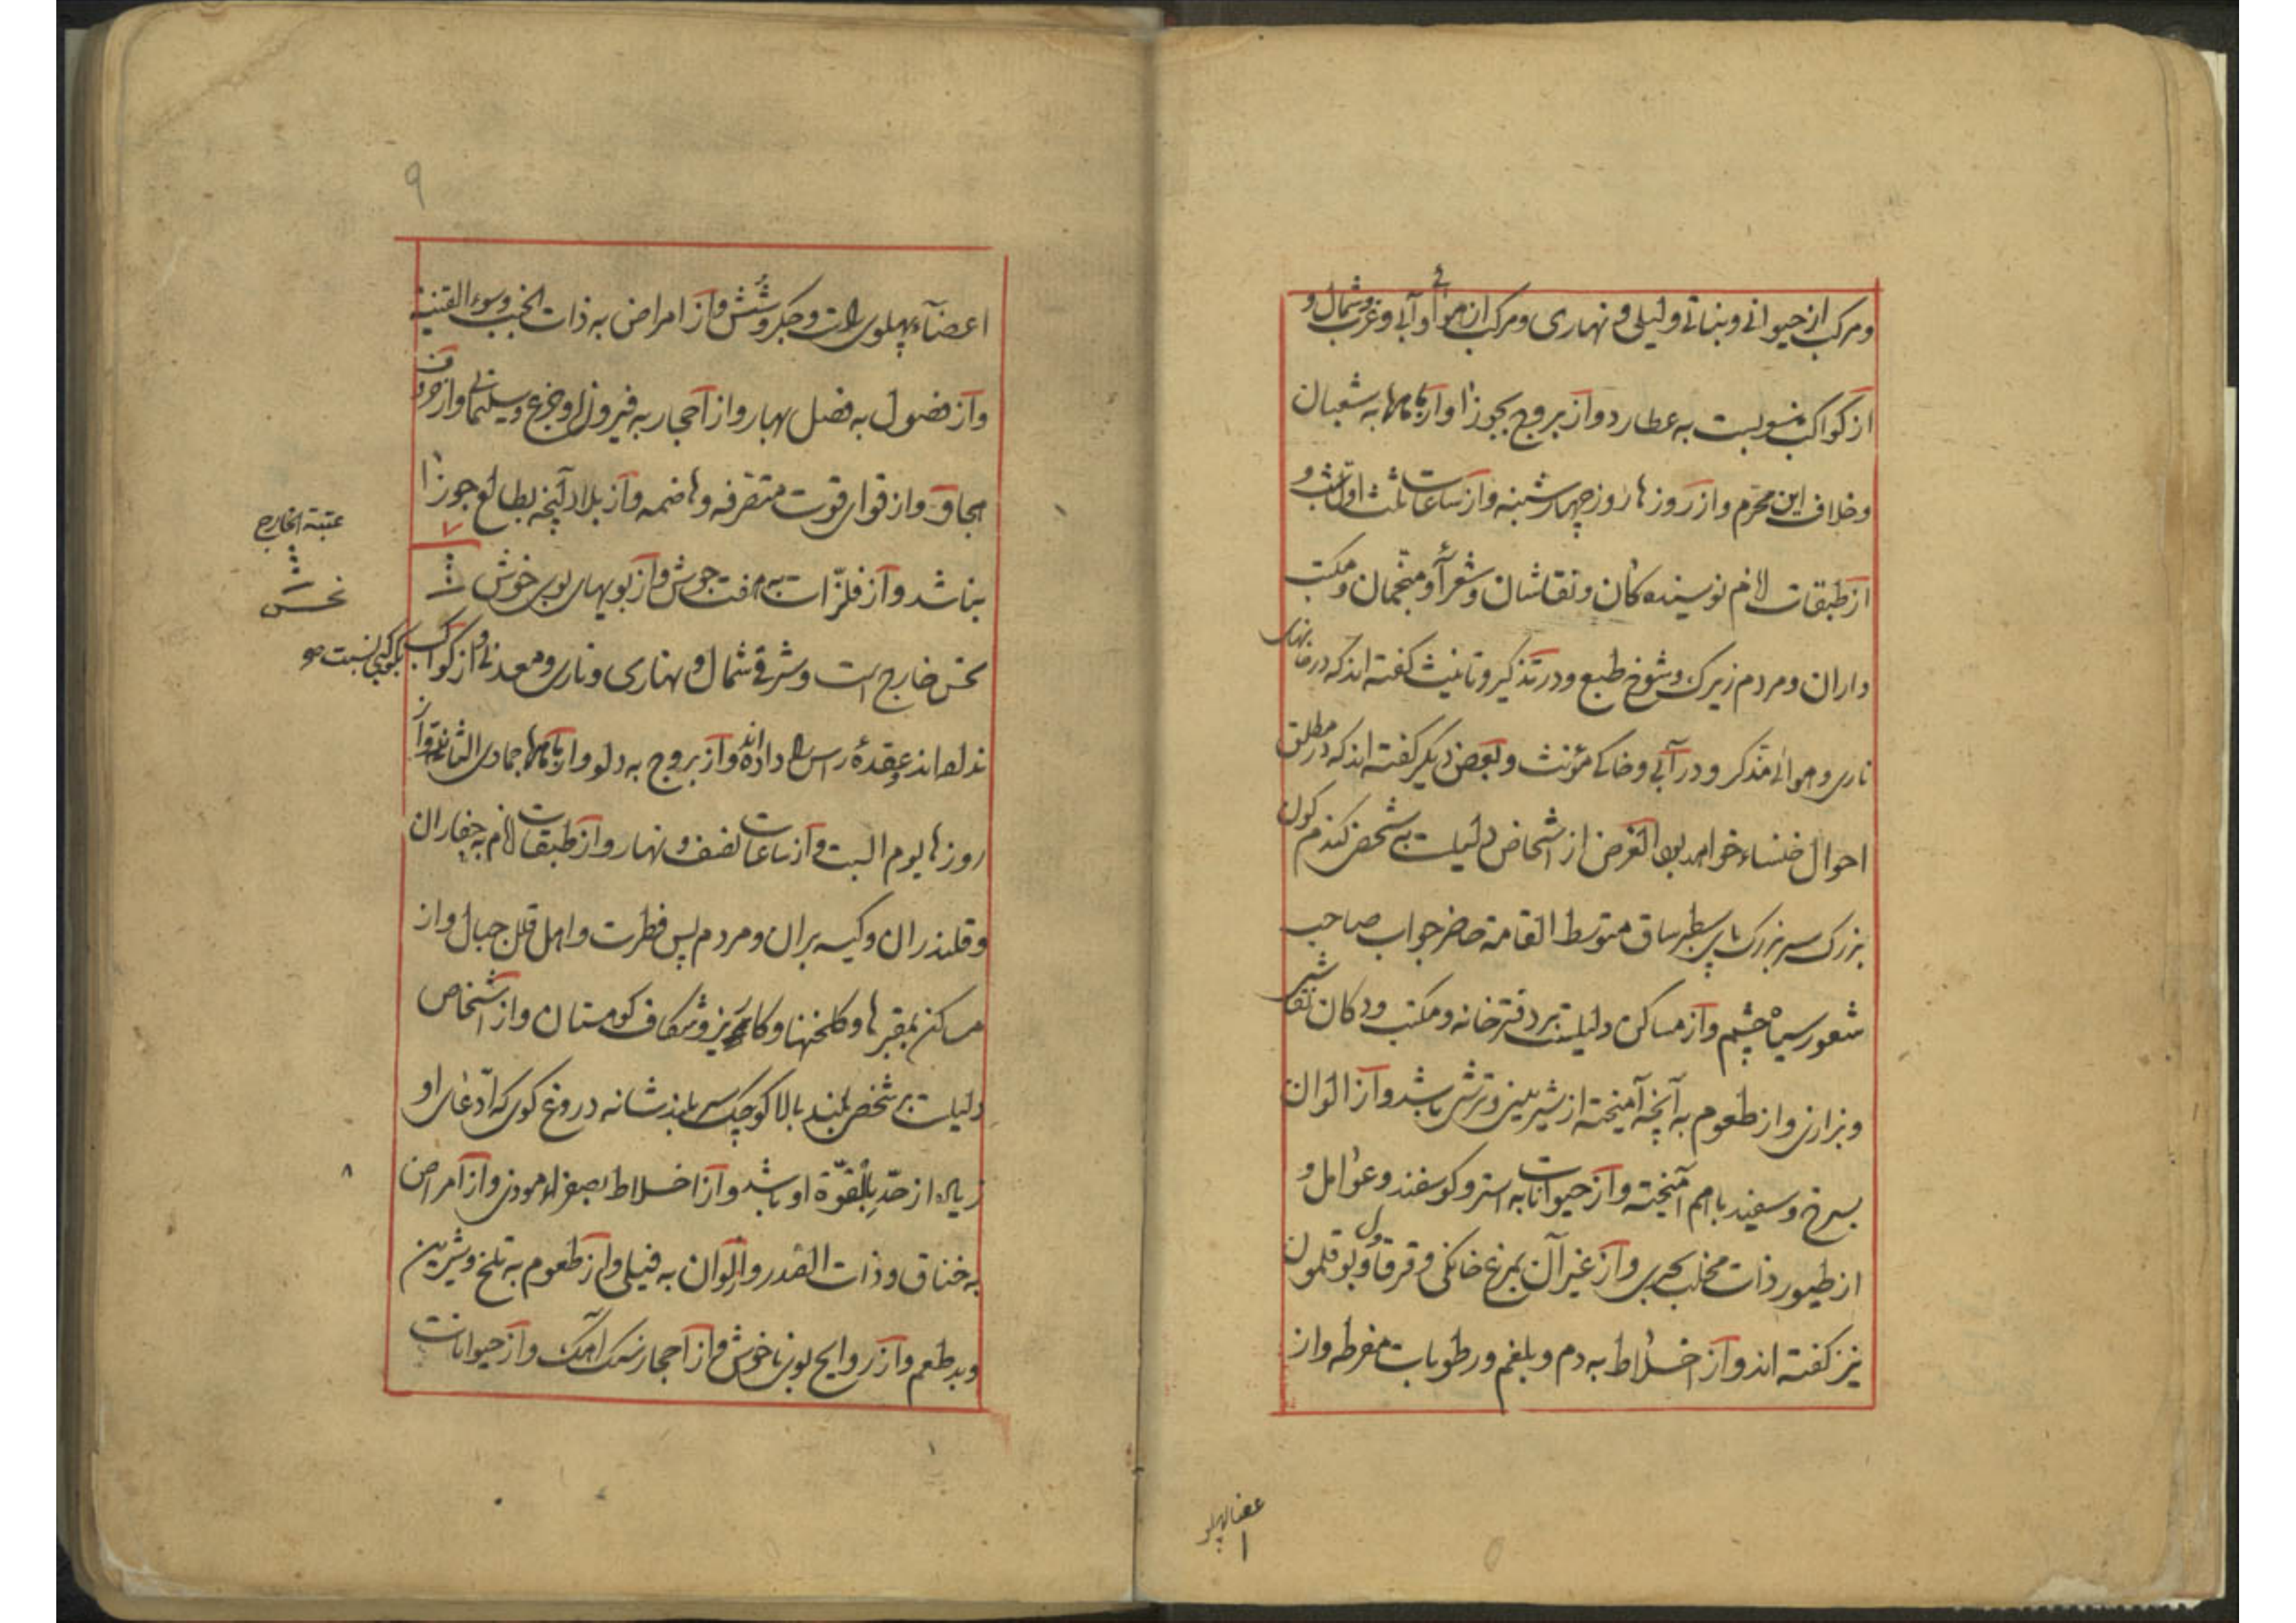 ومرکب از حیوانی و نباتی و لیلی و نهاری و مرکب از هوائی و آبی و غرب و شمال و
از کواکب منسوبست به عطارد و از بروج بجوزا و از ماهها به شعبان
و خلاف این محرم و از روزها روز چهارشنبه و از ساعات ثلث اول شب و
از طبقات لانم نویسنده کان و نقاشان و شعرآ و منجمان و مکتب
داران و مردم زیرک و شوخ طبع و در تذکیر و تانیث گفته اند که در خانهای
ناری و هوائی مذکر و در آبی و خاکی مؤنث و بعضی دیگر گفته اند که در مطلق
احوال خنساء خواهد بود الغرض از اشخاص دلیلست بر شخص کندم کون
بزرک سر بزرک پای سطبر ساق متوسط القامة حاضر جواب صاحب
شعور سیاه چشم و از مساکن دلیلست بر دفترخانه و مکتب و دکان نقاشی
و بزازی و از طعوم به آنچه آمیخته از شیرینی و ترشی باشد و از الوان
بسرخ و سفید باهم آمیخته و از حیوانات به استر و کوسفند و عوامل و
از طیور ذات مخلب بحری و از غیر آن بمرغ خانکی و قرقاول و بوقلمون
نیز کفته اند و از اخلاط به دم و بلغم و رطوبات مفرطه و از
اعضا پهلو
۹
اعضآء پهلوی راست و جکر و شش و از امراض به ذات الجنب و سوء القنیة
و از فصول به فصل بهار و از احجار به فیروزه و جزع و سلیمانی و از حروف
و از قوای قوت متصرفه و هاضمه و از بلاد آنچه بطالع جوزا
۷
بناشد و از فلزات به هفت جوش و از بویهای بوی خوش
عتبة الخارج
نحس
نحس خارج است و شرقی شمالی و نهاری و ناری و معدنی و از کواکب بکوکبی نسبت
نداده اند و عقدهٔ راس را داده اند و از بروج به دلو و از ماهها جمادی الثانی و از
روزها یوم السبت و از ساعات نصف و نهار و از طبقات لانم به حفاران
و قلندران و کیسه بران و مردم پس فطرت و اهل قلل جبال و از
مساکن بمقبرها و کلخنها و کاریز و شکاف کوهستان و از اشخاص
دلیلست بر شخص بلند بالا کوچک سر بلند شانه دروغ کوی که ادعای او
زیاده از حدّ بالقوّة او باشد و از اخلاط بصفراء موذی و از امراض
به خناق و ذات الصدر و از الوان به فیلی و از طعوم به تلخ و شیرین
و بد طعم و از روایح بوی ناخوش و از احجار سنک آهک و از حیوانات